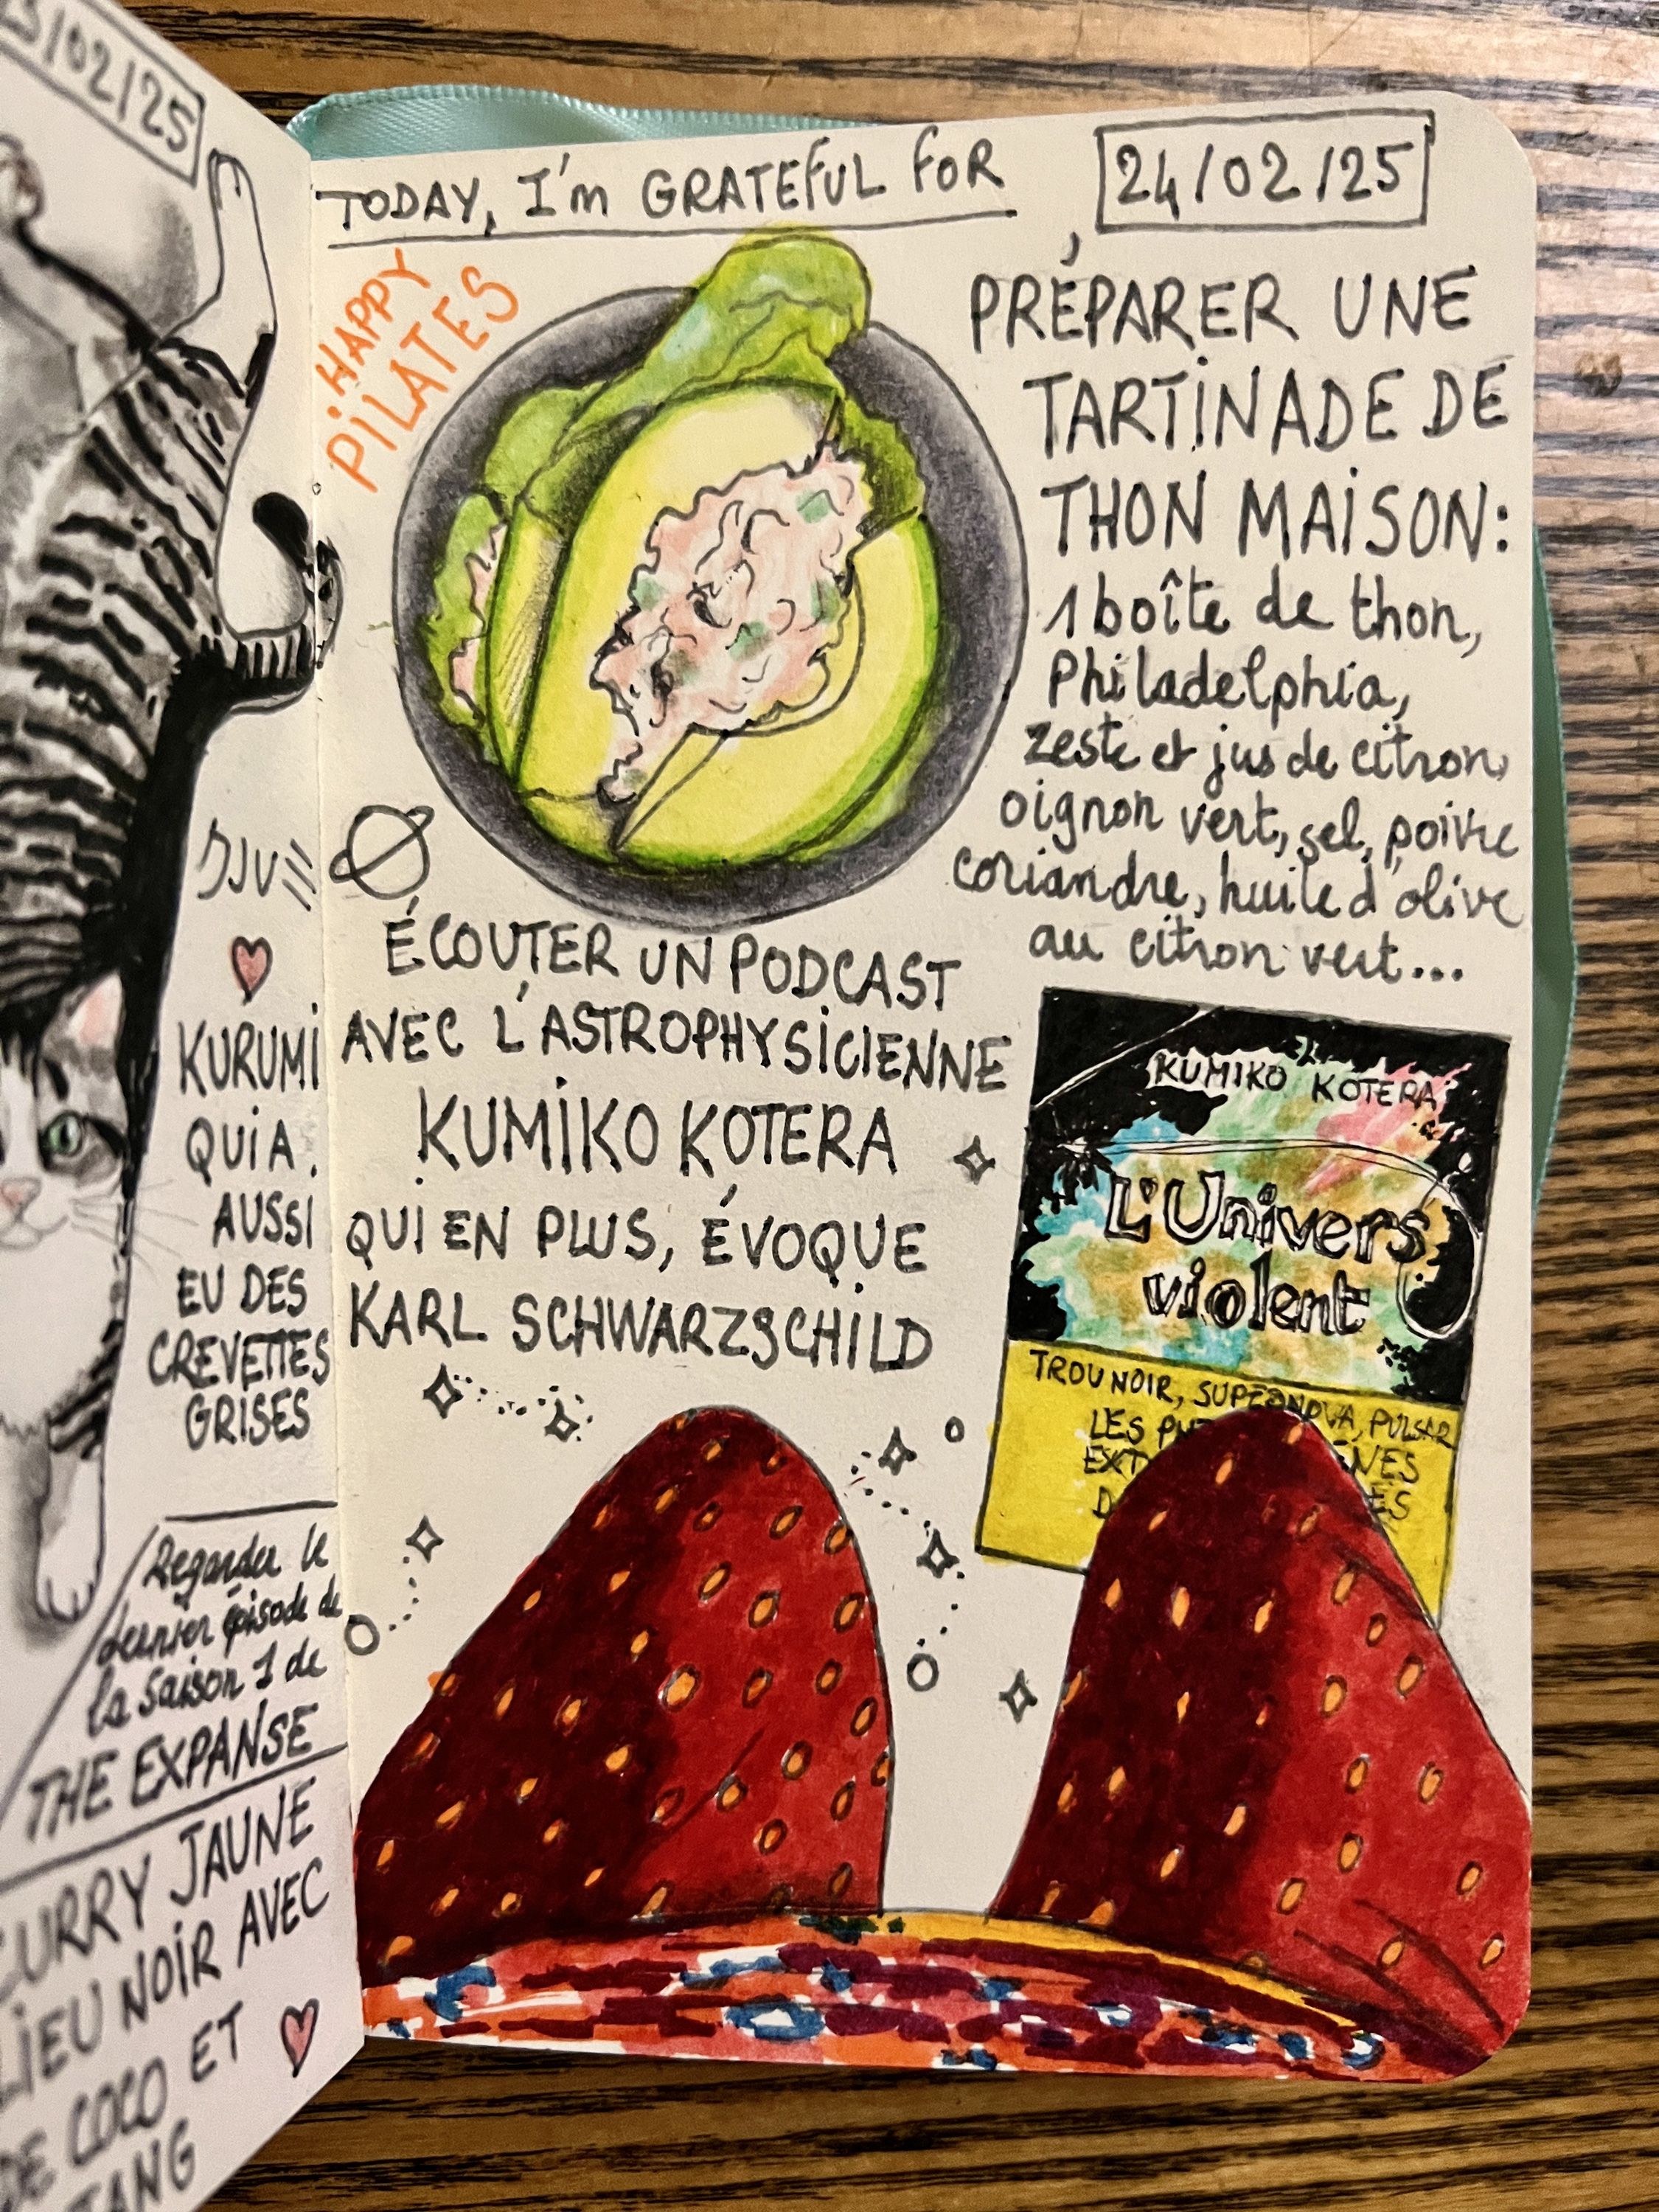 /02/25
ɅJU
KURUMI
QUI A
AUSSI
EU DES
CREVETTES
GRISES
Regarder le
dernier épisode de
la saison 1 de
THE EXPANSE
CURRY JAUNE
LIEU NOIR AVEC
DE COCO ET
TANG
TODAY, I'm GRATEFUL FOR
24/02/25
HAPPY
PILATES
PRÉPARER UNE
TARTINADE DE
THON MAISON:
1 boîte de thon,
Philadelphia,
zeste et jus de citron,
oignon vert, sel, poivre
coriandre, huile d'olive
au citron vert...
ÉCOUTER UN PODCAST
AVEC L'ASTROPHYSICIENNE
KUMIKO KOTERA
QUI EN PLUS, ÉVOQUE
KARL SCHWARZSCHILD
KUMIKO KOTERA
L'Univers
violent
TROU NOIR, SUPERNOVA, PULSAR
LES